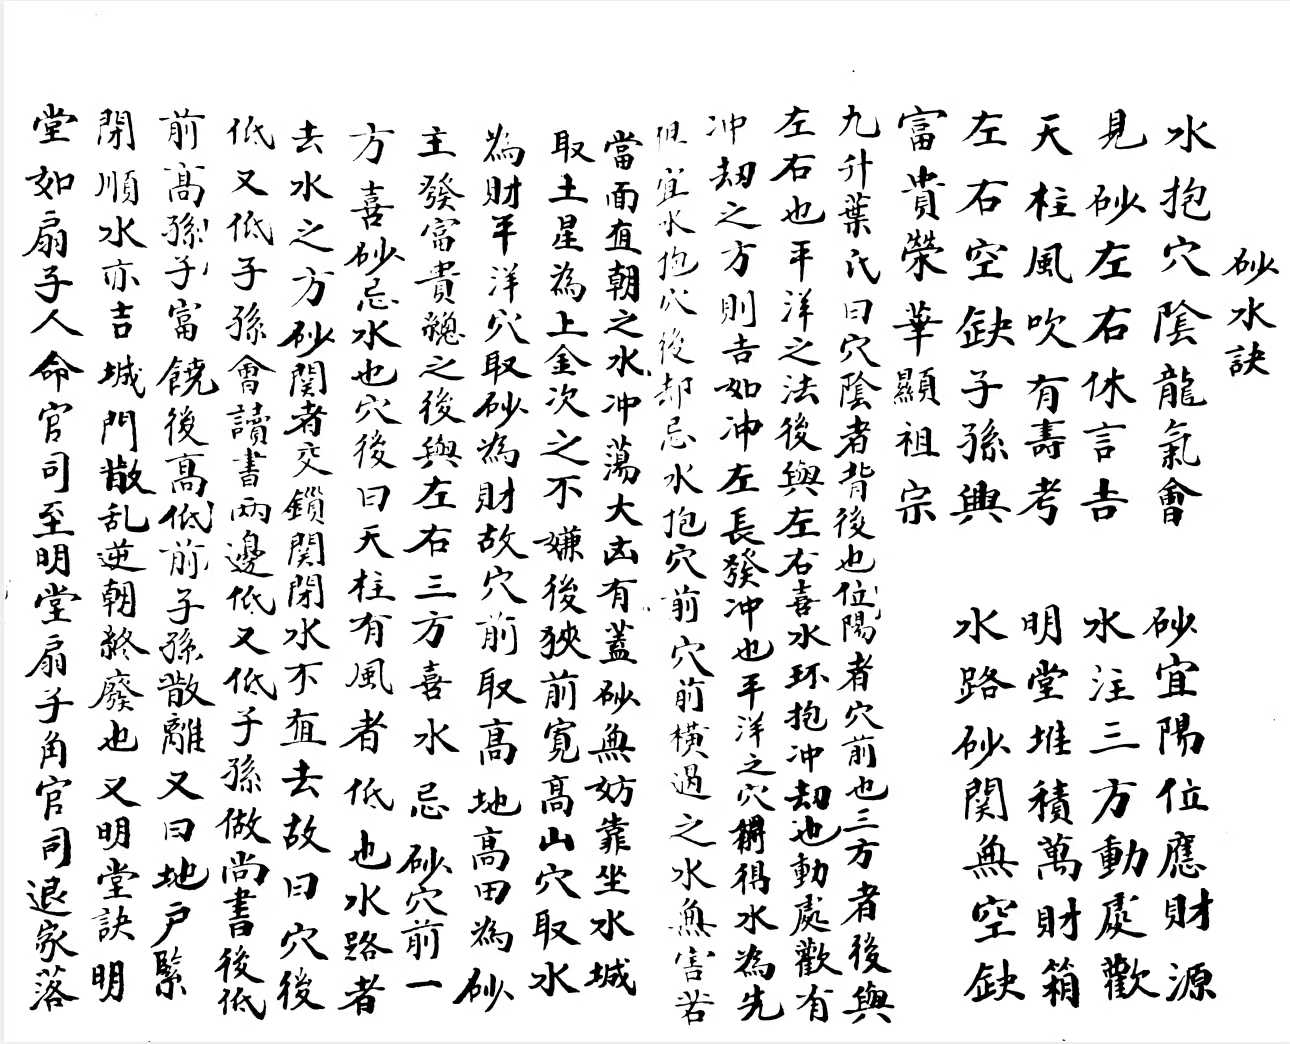 砂水訣
水抱穴陰龍氣會　砂宜陽位應財源
見砂左右休言吉　水注三方動處歡
天柱風吹有壽考　明堂堆積萬財箱
左右空缺子孫興　水路砂関無空缺
富貴榮華顯祖宗
九升葉氏曰穴陰者背後也位陽者穴前也三方者後與
左右也平洋之法後與左右喜水环抱冲刼也動處歡有
冲刼之方則吉如冲左長發冲也平洋之穴得水為先
但宜水抱穴後却忌水抱穴前穴前橫過之水無害若
當面直朝之水冲蕩大凶有蓋砂無妨靠坐水城
取土星為上金次之不嫌後狹前寬高山穴取水
為財平洋穴取砂為財故穴前取高地高田為砂
主發富貴總之後與左右三方喜水忌砂穴前一
方喜砂忌水也穴後曰天柱有風者低也水路者
去水之方砂関者交鎖関閉水不直去故曰穴後
低又低子孫會讀書兩邊低又低子孫做尚書後低
前高孫子富饒後高低前子孫散離又曰地戶緊
閉順水亦吉城門散乱逆朝終廢也又明堂訣明
堂如扇子人命官司至明堂扇子角官司退家落